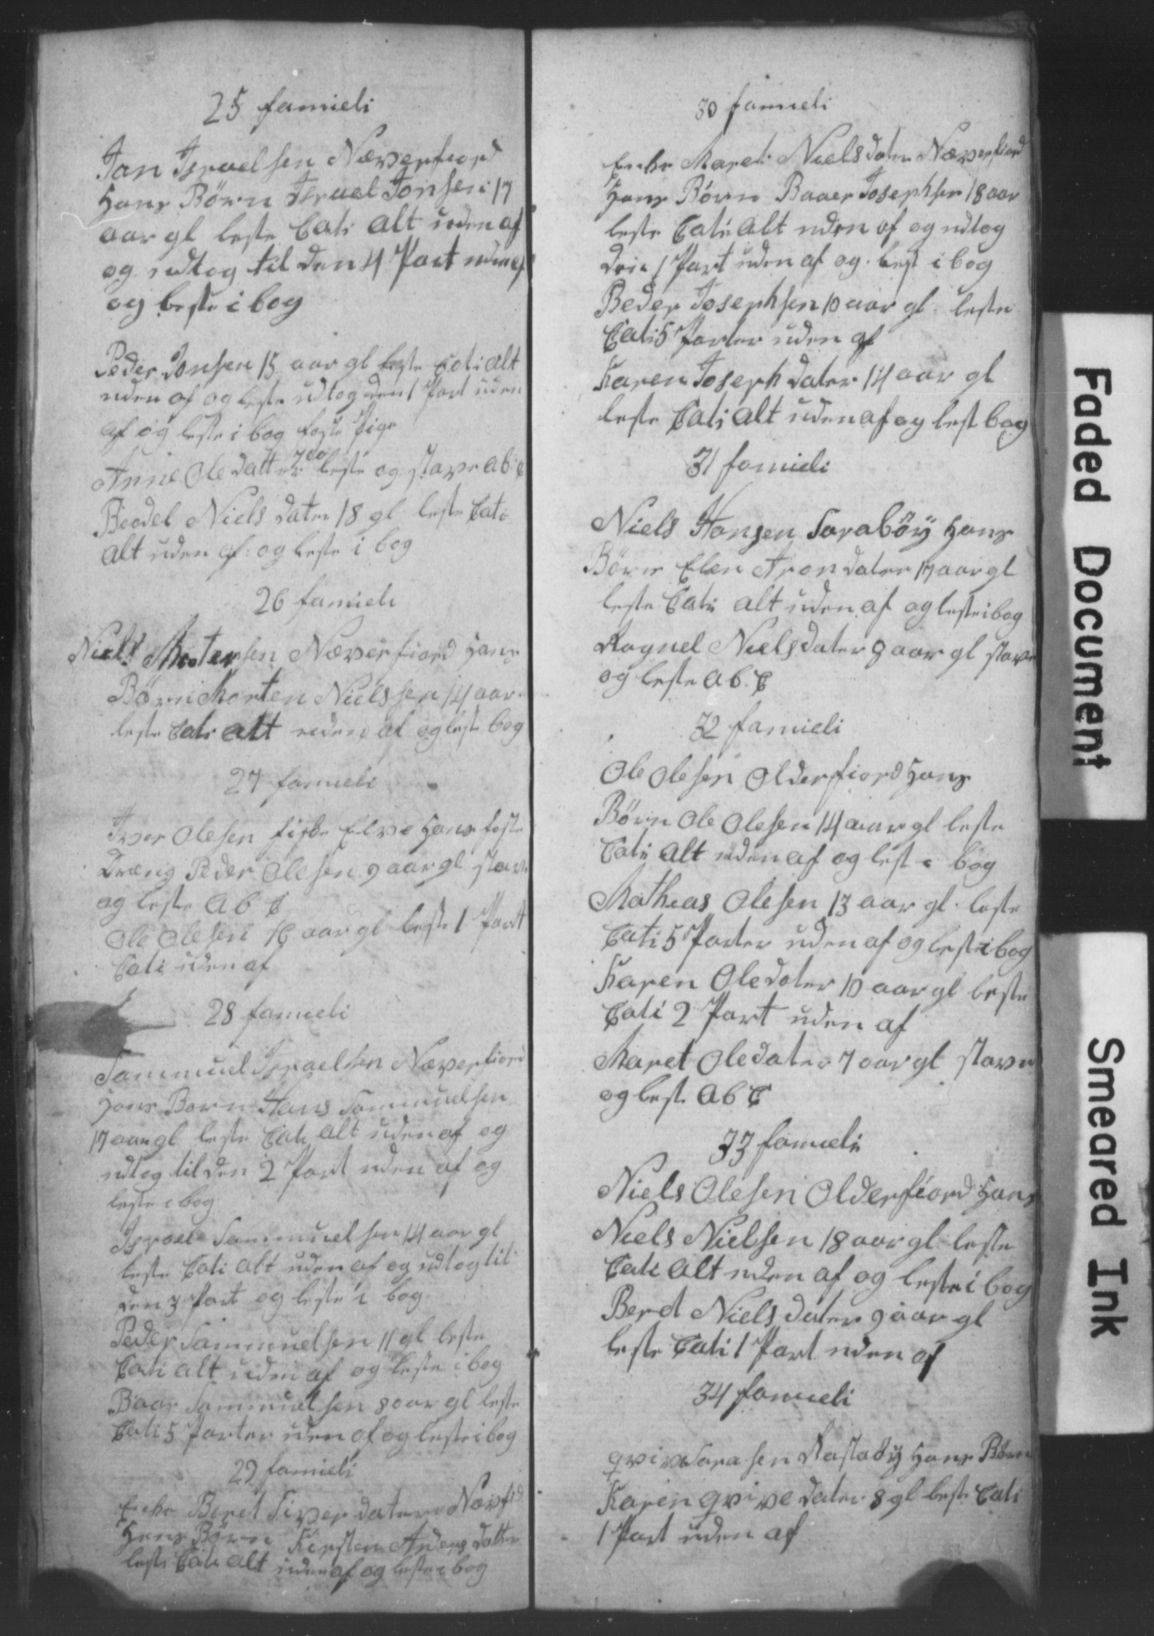 25 famieli
Jan Israelsen Næverfiord
Hans Børn Israel Jonsen 17
aar gl leste Cati alt uden af
og udtog til den 4 Part uden af
og leste i bog
Peder Jonsen 15 aar gl leste Cati alt
uden af og leste udtog den 1 Part uden
af og leste i bog foste Pige
Anne Ole datter leste og stave ab c
Beodel Niels dater 18 gl leste Cati
alt uden af og leste i bog
26 famieli
Niels Mortensen Næverfiord Hans
Børn Morten Nielssen 14 aar
leste Cati alt uden af og leste bog
27 famieli
Iver Olesen fiske Elve Hans foste
Dræng Peder Olesen 9 aar gl stave
og leste ab c
Ole Olesen 16 aar gl leste 1 Part
Cati uden af
28 famieli
Sammuel Israelsen Næverfiord
Hans Børn Hans Sammuelsen
17 aar gl leste Cati alt uden af og
udtog til den 2 Part uden af og
leste i bog
Israel Sammuelsen 14 aar gl
leste Cati alt uden af og udtog til
den 3 Part og leste i bog
Peder Sammuelsen 11 gl leste
Cati alt uden af og leste i bog
Baar Sammuelsen 8 aar gl leste
Cati 5 Parter uden af og leste i bog
29 famieli
Enke Beret Siver dater Nævfid
Hens Børn Kirsten Anders Datter
leste Cati alt uden af og leste i bog
30 famieli
Enke Maret Niels dater Næverfiord
Hans Børn Baaer Josephsen 18 aar
leste Cati alt uden af og udtog
den 1 Part uden af og lest i bog
Beder Josephsen 10 aar gl leste
Cati 5 Parter uden af
Karen Joseph dater 14 aar gl
leste Cati alt uden af og lest bog
31 famieli
Niels Hansen Saraböÿ Hans
Børn Elen Aron dater 17 aar gl
leste Cati alt uden af og leste i bog
Ragnel Niels dater 9 aar gl stave
og leste ab c
32 famieli
Ole Olesen Olderfiord Hans
Børn Ole Olesen 14 aar gl leste
Cati alt uden af og lest i bog
Mathias Olesen 13 aar gl leste
Cati 5 Parter uden af og lest i bog
Karen Ole dater 10 aar gl leste
Cati 2 Part uden af
Maret Ole dater 7 aar gl stave
og lest ab c
33 famieli
Niels Olesen Olderfiord Hans
Niels Nielsen 18 aar gl leste
Cati alt uden af og leste i bog
Berd Niels dater 9 aar gl
leste Cati 1 Part uden af
34 famieli
Sarasen Hans Børn
Karen qvive dater 8 gl leste Cati
1 Part uden af
Faded Document
Smeared Ink